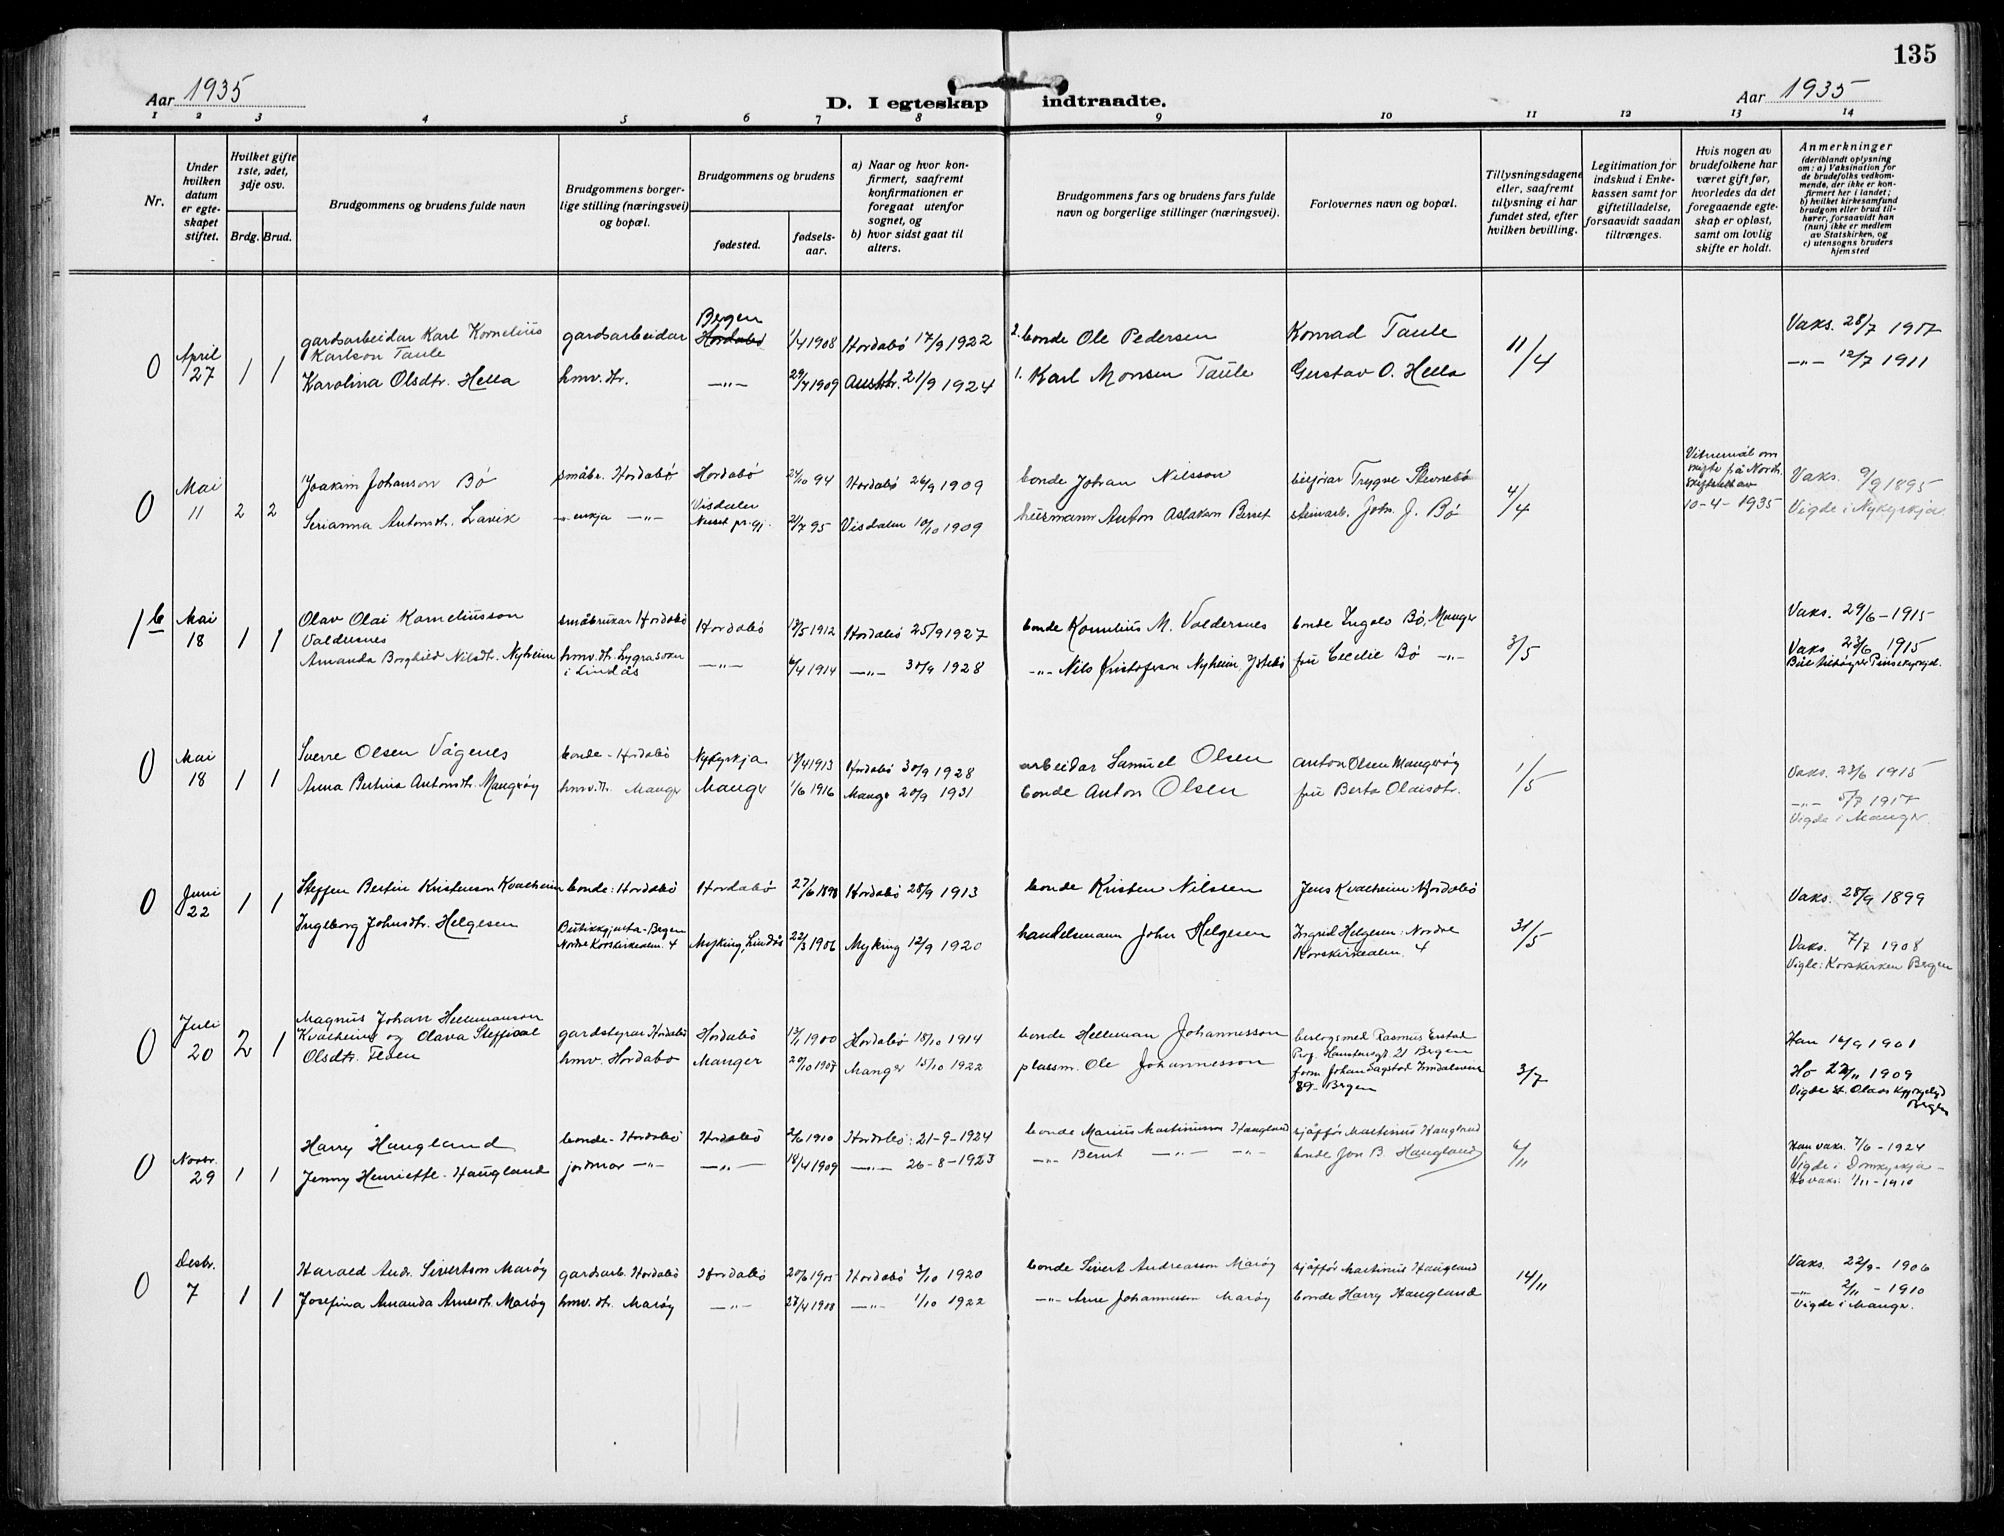 135
Aar 1935
D. I egteskap indtraadte.
Aar 1935
1 2 3 4 5 6 7 8 9 10 11 12 13 14
Nr.
Under hvilken datum er egteskapet stiftet.
Hvilket gifte 1ste, 2det, 3dje osv.
Brdg. Brud.
Brudgommens og brudens fulde navn
Brudgommens borgerlige stilling (næringsvei) og bopæl.
Brudgommens og brudens
fødested. fødselsaar.
a) Naar og hvor konfirmert, saafremt konfirmationen er foregaat utenfor sognet, og
b) hvor sidst gaat til alters.
Brudgommens fars og brudens fars fulde navn og borgerlige stillinger (næringsvei).
Forlovernes navn og bopæl.
Tillysningsdagene eller, saafremt tillysning ei har fundet sted, efter hvilken bevilling.
Legitimation for indskud i Enkekassen samt for giftetilladelse, forsaavidt saadan tiltrænges.
Hvis nogen av brudefolkene har været gift før, hvorledes da det foregaaende egteskap er opløst, samt om lovlig skifte er holdt.
Anmerkninger
(deriblandt oplysning om: a) Vaksination for de brudefolks vedkommende, der ikke er konfirmert her i landet; b) hvilket kirkesamfund brudgom eller brud tilhører, forsaavidt han (hun) ikke er medlem av Statskirken, og c) utensogns bruders hjemsted
0 April 27 1 1
gardsarbeidar Karl Kornelius Karlson Taule gardsarbeidar Bergen Hordabø 1/4 1908 Hordabø 17/9 1922 2. bonde Ole Pedersen Konrad Taule 11/4 Vaks. 28/7 1917
Karolina Olsdtr. Hella hmv. tr. -"- 29/7 1909 Austr. 21/9 1924 1. Karl Monsen Taule Gustav O. Hella -"- 12/7 1911
0 Mai 11 2 2
Joakim Johanson Bø småbr. Hordabø Hordabø 24/10 94 Hordabø 26/9 1909 bonde Johan Nilsson Trygve 4/4 10-4-1935 Vaks. 9/9 1895
Serianna Antonsdtr. Lavik enkja -"- Visdalen 21/7 95 Visdalen 10/10 1909 husmann Anton Aslaksen Berset steinarb. Joh. J. Bø Vigde i Nykyrkja
1 b Mai 18 1 1
Olav Olai Korneliusson Valdersnes småbrukar Hordabø Hordabø 13/5 1912 Hordabø 25/9 1927 bonde Kornelius M. Valdersnes bonde Ingolv Bø, Manger 3/5 Vaks. 29/6 - 1915
Amanda Borghild Nilsdtr. Nyheim hmv. tr. Lygrasokn i Lindås -"- 6/4 1914 -"- 30/9 1928 -"- Nils Kristoferson Nyheim, fru Cecilie Bø -"- Vaks. 23/6 1915
0 Mai 18 1 1
Sverre Olsen Vågenes bonde - Hordabø Nykyrkja 13/4 1913 Hordabø 30/9 1928 arbeidar Samuel Olsen Anton Olsen Mangrøy 1/5 Vaks. 23/6 1915
Anna Bertina Antonsdtr. Mangrøy hmv. tr. Manger Manger 1/6 1916 Manger 20/9 1931 bonde Anton Olsen fru Berta Olaisdtr. -"- 5/7 1917
Vigde i Manger.
0 Juni 22 1 1
Steffen Bertin Kristenson Kvalheim bonde: Hordabø Hordabø 27/6 1898 Hordabø 28/9 1913 bonde Kristen Nilssen Jens Kvalheim: Hordabø 31/5 Vaks. 28/9 1899
Ingeborg Johnsdtr. Helgesen Butikkgjenta - Bergen Nordre Korskirkealm. 4 Myking, Lindås 22/3 1906 Myking 12/9 1920 handelsmann John Helgesen Ingrid Helgesen: Nordre Korskirkealm. 4 Vaks. 7/7 1908
Vigde: Korskirken Bergen
0 Juli 20 2 1
Magnus Johan Hellemanson Kvalheim og Olava Steffine Olsdtr. Fleten gardstyrar Hordabø Hordabø 13/1 1900 Hordabø 18/10 1914 bonde Helleman Johannesson Rasmus Erstad Prof. Hansteensgt 21 Bergen 3/7 Han 16/9 1901
hmv. Hordabø Manger 20/10 1907 Manger 15/10 1922 plassm. Ole Johannesson Johan Sagstad 89 - Bergen Ho 22/11 1909
Vigde St. Olavs Bergen
0 Novbr. 29 1 1
Harry Haugland bonde - Hordabø Hordabø 2/6 1910 Hordabø: 21-9-1924 bonde Marius Martinusson Haugland sjåffør Martinus Haugland 6/11 Han vaks. 7/6 - 1924
Jenny Henriette Haugland jordmor -"- -"- 18/4 1909 -"- 26-8-1923 -"- Bernt -"- -"- bonde Jon B. Haugland Vigde i Domkyrkja -
Ho vaks. 1/11 - 1910
0 Desbr. 7 1 1
Harald Andr. Sivertson Marøy gardsarb. Hordabø Hordabø 20/6 1905 Hordabø 3/10 1920 bonde Sivert Andreasson Marøy sjåffør Martinus Haugland 14/11 Vaks. 22/9 - 1906
Josefina Amanda Arnesdtr. Marøy hmv. tr. Marøy -"- 27/4 1908 -"- 1/10 1922 -"- Arne Johannesson Marøy bonde Harry Haugland -"- 2/11 - 1910
Vigde i Manger.